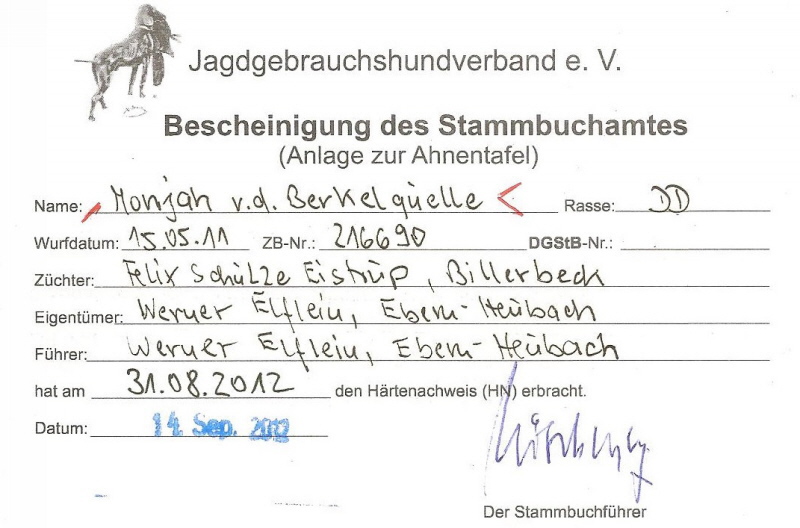 Jagdgebrauchshundverband e. V.
Bescheinigung des Stammbuchamtes
(Anlage zur Ahnentafel)
Name: Monjah v.d. Berkelquelle Rasse: DD
Wurfdatum: 15.05.11 ZB-Nr.: 216690 DGStB-Nr.:
Züchter: Felix Schulze Eistrup, Billerbeck
Eigentümer: Werner Elflein, Ebern-Heubach
Führer: Werner Elflein, Ebern-Heubach
hat am 31.08.2012 den Härtenachweis (HN) erbracht.
Datum: 14. Sep. 2012
Der Stammbuchführer